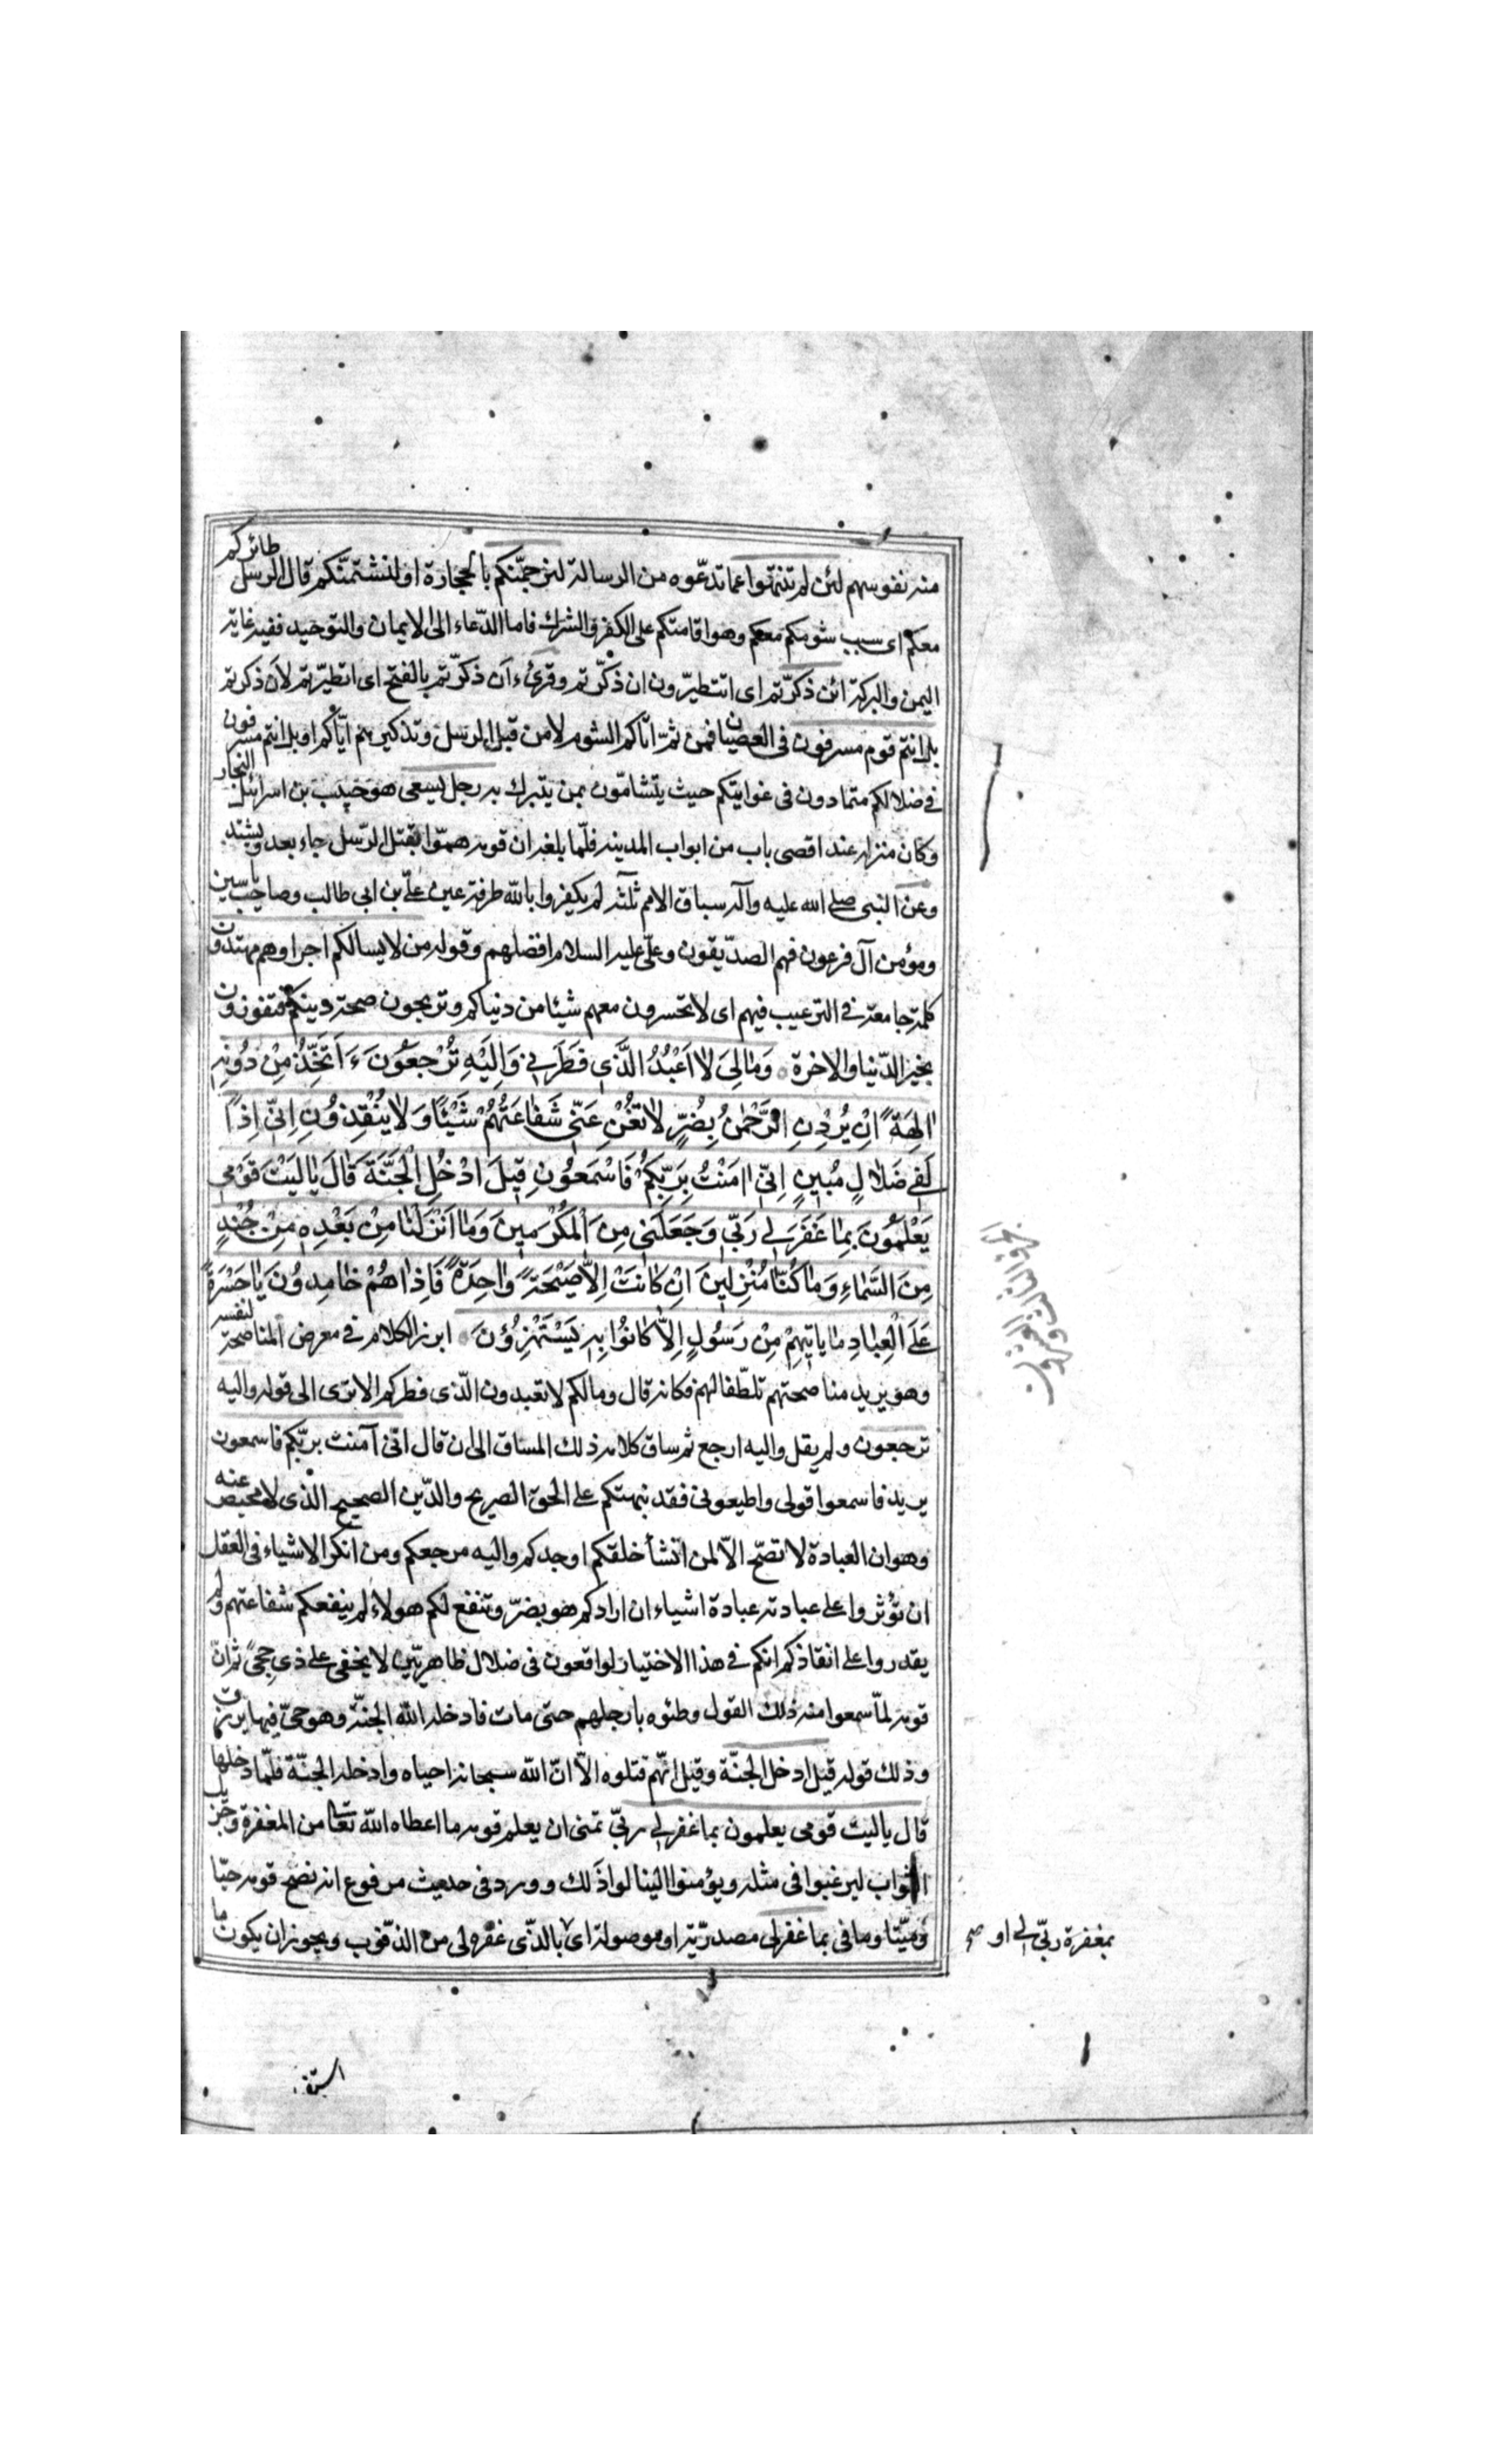 منه نفوسهم لئن لم تنتهوا عما تدعوه من الرسالة لنرجمنّكم بالحجارة او لنشتمنّكم قال الرسل طائركم
معكم اى سبب شومكم معكم وهو اقامتكم على الكفر والشرك فاما الدّعاء الى الايمان والتوحيد ففيه غاية
اليمن والبركة ائن ذكّرتم اى اتتطيّرون ان ذكّرتم وقرئ ءاَن ذكّرتم بالفتح اى اتطيّرتم لاَن ذكرتم
بل انتم قوم مسرفون فى العصيان فمن ثمّ اتاكم الشوم لا من قبل الرسل وتذكيرهم ايّاكم او بل انتم مسرفون
فى ضلالكم متمادون فى غوايتكم حيث يتشامّون بمن يتبرك به رجل يسعى هو حبيب بن اسرائيل النجار
وكان منزله عند اقصى باب من ابواب المدينه فلمّا بلغه ان قومه همّوا بقتل الرّسل جاء يعدو ويشتد
وعن النبى صلى الله عليه وآله سباق الامم ثلثة لم يكفروا بالله طرفة عين علىّ بن ابى طالب وصاحب ياسين
ومؤمن آل فرعون فهم الصدّيقون وعلىّ عليه السلام افضلهم وقوله من لا يسالكم اجرا وهم مهتدون
كلمة جامعة فى الترغيب فيهم اى لا تخسرون معهم شيئا من دنياكم وتربحون صحة دينكم فتفوزون
بخير الدّنيا والاخرة وَمٰا لِىَ لٰا اَعْبُدُ الَّذى فَطَرَنى وَاِلَيْهِ تُرْجَعُونَ ءَاَتَّخِذُ مِنْ دُونِهِ
اٰلِهَةً اِنْ يُرِدْنِ الرَّحْمٰنُ بِضُرٍّ لٰا تُغْنِ عَنّى شَفٰاعَتُهُمْ شَيْئًا وَلٰا يُنْقِذُونِ اِنّى اِذًا
لَفى ضَلٰالٍ مُبينٍ اِنّى اٰمَنْتُ بِرَبِّكُمْ فَاسْمَعُونِ قيلَ ادْخُلِ الْجَنَّةَ قٰالَ يٰا لَيْتَ قَوْمى
يَعْلَمُونَ بِمٰا غَفَرَ لى رَبّى وَجَعَلَنى مِنَ الْمُكْرَمينَ وَمٰا اَنْزَلْنٰا مِنْ بَعْدِهِ مِنْ جُنْدٍ
مِنَ السَّمٰاءِ وَمٰا كُنّٰا مُنْزِلينَ اِنْ كٰانَتْ اِلّٰا صَيْحَةً وٰاحِدَةً فَاِذٰا هُمْ خٰامِدُونَ يٰا حَسْرَةً
عَلَى الْعِبٰادِ مٰا يَاتيهِمْ مِنْ رَسُولٍ اِلّٰا كٰانُوا بِهِ يَسْتَهْزِؤُنَ ابرز الكلام فى معرض المناصحة لنفسه
وهو يريد مناصحتهم تلطّفا لهم فكانه قال وما لكم لا تعبدون الّذى فطركم الا ترى الى قوله واليه
ترجعون ولم يقل واليه ارجع ثم ساق كلامه ذلك المساق الى ان قال انّى آمنت بربّكم فاسمعون
يريد فاسمعوا قولى واطيعونى فقد نبهتكم على الحق الصريح والدّين الصحيح الّذى لا محيص عنه
وهو ان العبادة لا تصّح الّا لمن انشأ خلقكم اوجدكم واليه مرجعكم ومن انكر الاشياء فى العقل
ان تؤثروا على عبادته عبادة اشياء ان ارادكم هو بضرّ وتنفع لكم هولاء لم ينفعكم شفاعتهم ولم
يقدروا على انقاذكم انكم فى هذا الاختيار لواقعون فى ضلال ظاهر بيّن لا يخفى على ذى حجىً ثم انّ
قومه لمّا سمعوا منه ذلك القول وطئوه بارجلهم حتى مات فادخله الله الجنّة وهو حىّ فيها يرزق
وذلك قوله قيل ادخل الجنّة وقيل انّهم قتلوه الّا انّ الله سبحانه احياه وادخله الجنّة فلمّا دخلها
قال يا ليت قومى يعلمون بما غفر لى ربّى تمنى ان يعلم قومه ما اعطاه الله تعا من المغفرة وجزيل
الثواب ليرغبوا فى مثله ويؤمنوا لينالوا ذلك وورد فى حديث مرفوع انه نصح قومه حيّا
وميّتا وما فى بما غفر لى مصدريّة او موصولة اى بالّذى غفره لى من الذنوب ويجوز ان يكون ما
بمغفرة ربّى لى او صح